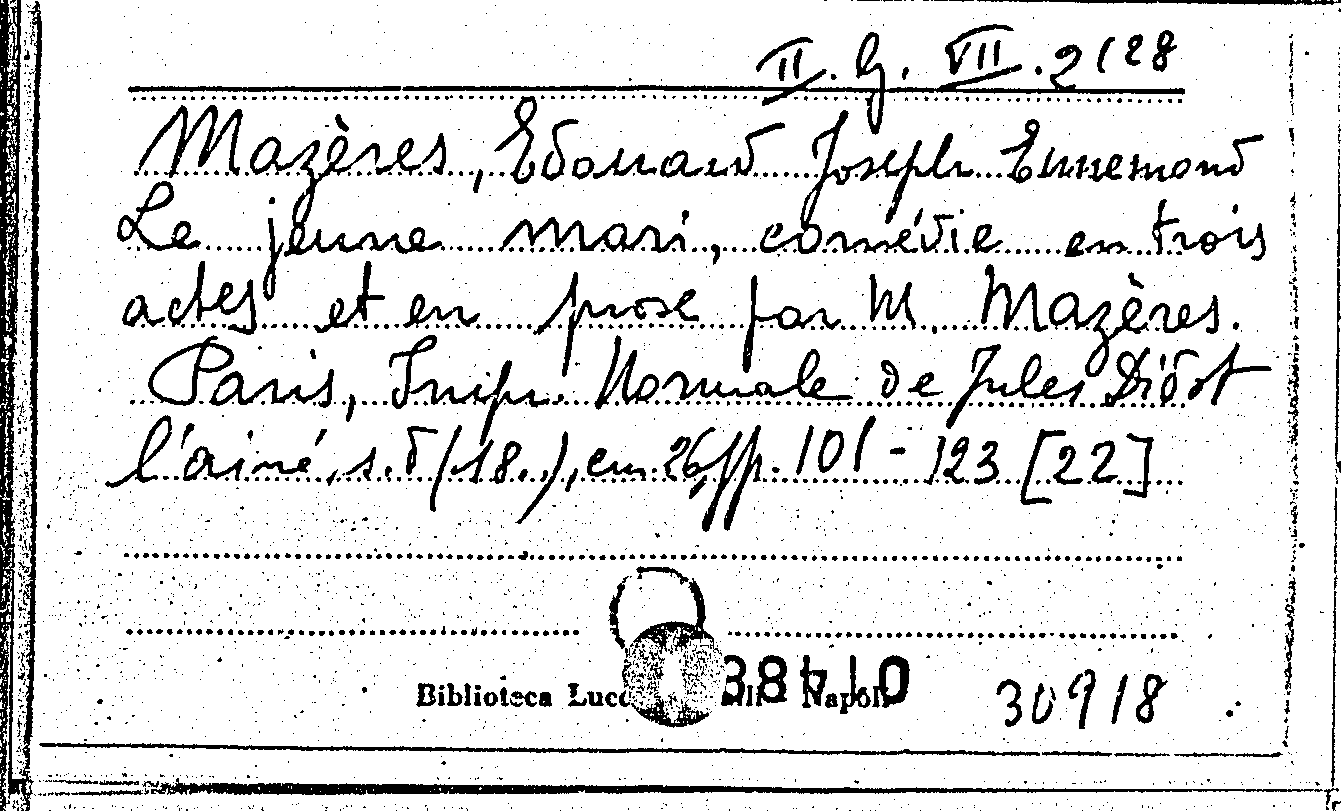 II. G. VII. 2128
Mazères, Edouard Joseph Ennemond
Le jeune mari, comédie en trois
actes et en prose par M. Mazères.
Paris, Impr. Normale de Jules Didot
l'ainé, s.d (18..), cm. 26, pp. 101 - 123 [22]
Biblioteca Napoli
30918